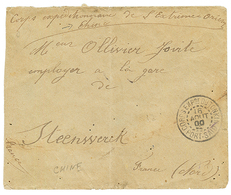 Corps expéditionnaire de l'Extreme Orient
Chine
Mieur Ollivier Jovite
employer à la gare
de
Steenwerck
France (Nord)
CHINE